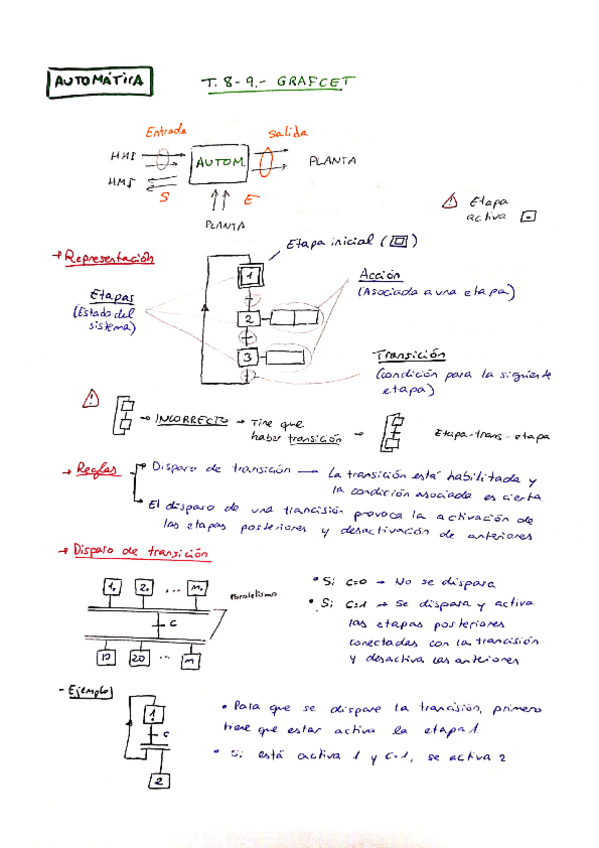 AUTOMÁTICA
T. 8-9.- GRAFCET
Entrada
Salida
HMI
AUTOM.
PLANTA
HMI
S
E
PLANTA
Etapa
activa
Etapa inicial ( )
→ Representación
1
Acción
(Asociada a una etapa)
Etapas
(Estado del
sistema)
2
3
Transición
(condición para la siguiente
etapa)
→ INCORRECTO → Tine que
haber transición →
Etapa-trans-etapa
→ Reglas
Disparo de transición → La transición está habilitada y
la condición asociada es cierta
El disparo de una trancisión provoca la activación de
las etapas posteriores y desactivación de anteriores
→ Disparo de transición
1. 2. ... m.
Paralelismo
C
10 20 ... m
• Si C=0 → No se dispara
• Si C=1 → Se dispara y activa
las etapas posteriores
conectadas con la trancisión
y desactiva las anteriores
- Ejemplo
1.
C
2
• Para que se dispare la trancisión, primero
tiene que estar activa la etapa 1.
• Si está activa 1 y C=1, se activa 2